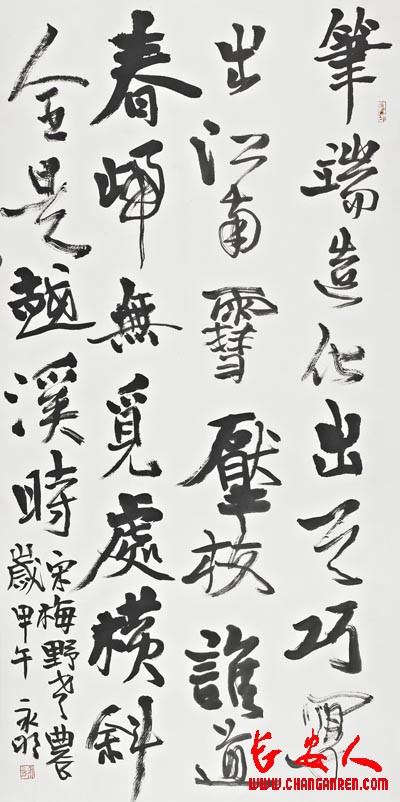 筆端造化出天巧寫
出江南䨮壓枝誰道
春歸無覓處橫斜
全是越溪時
宋梅野老農
歲甲午永明
长安人
WWW.CHANGANREN.COM